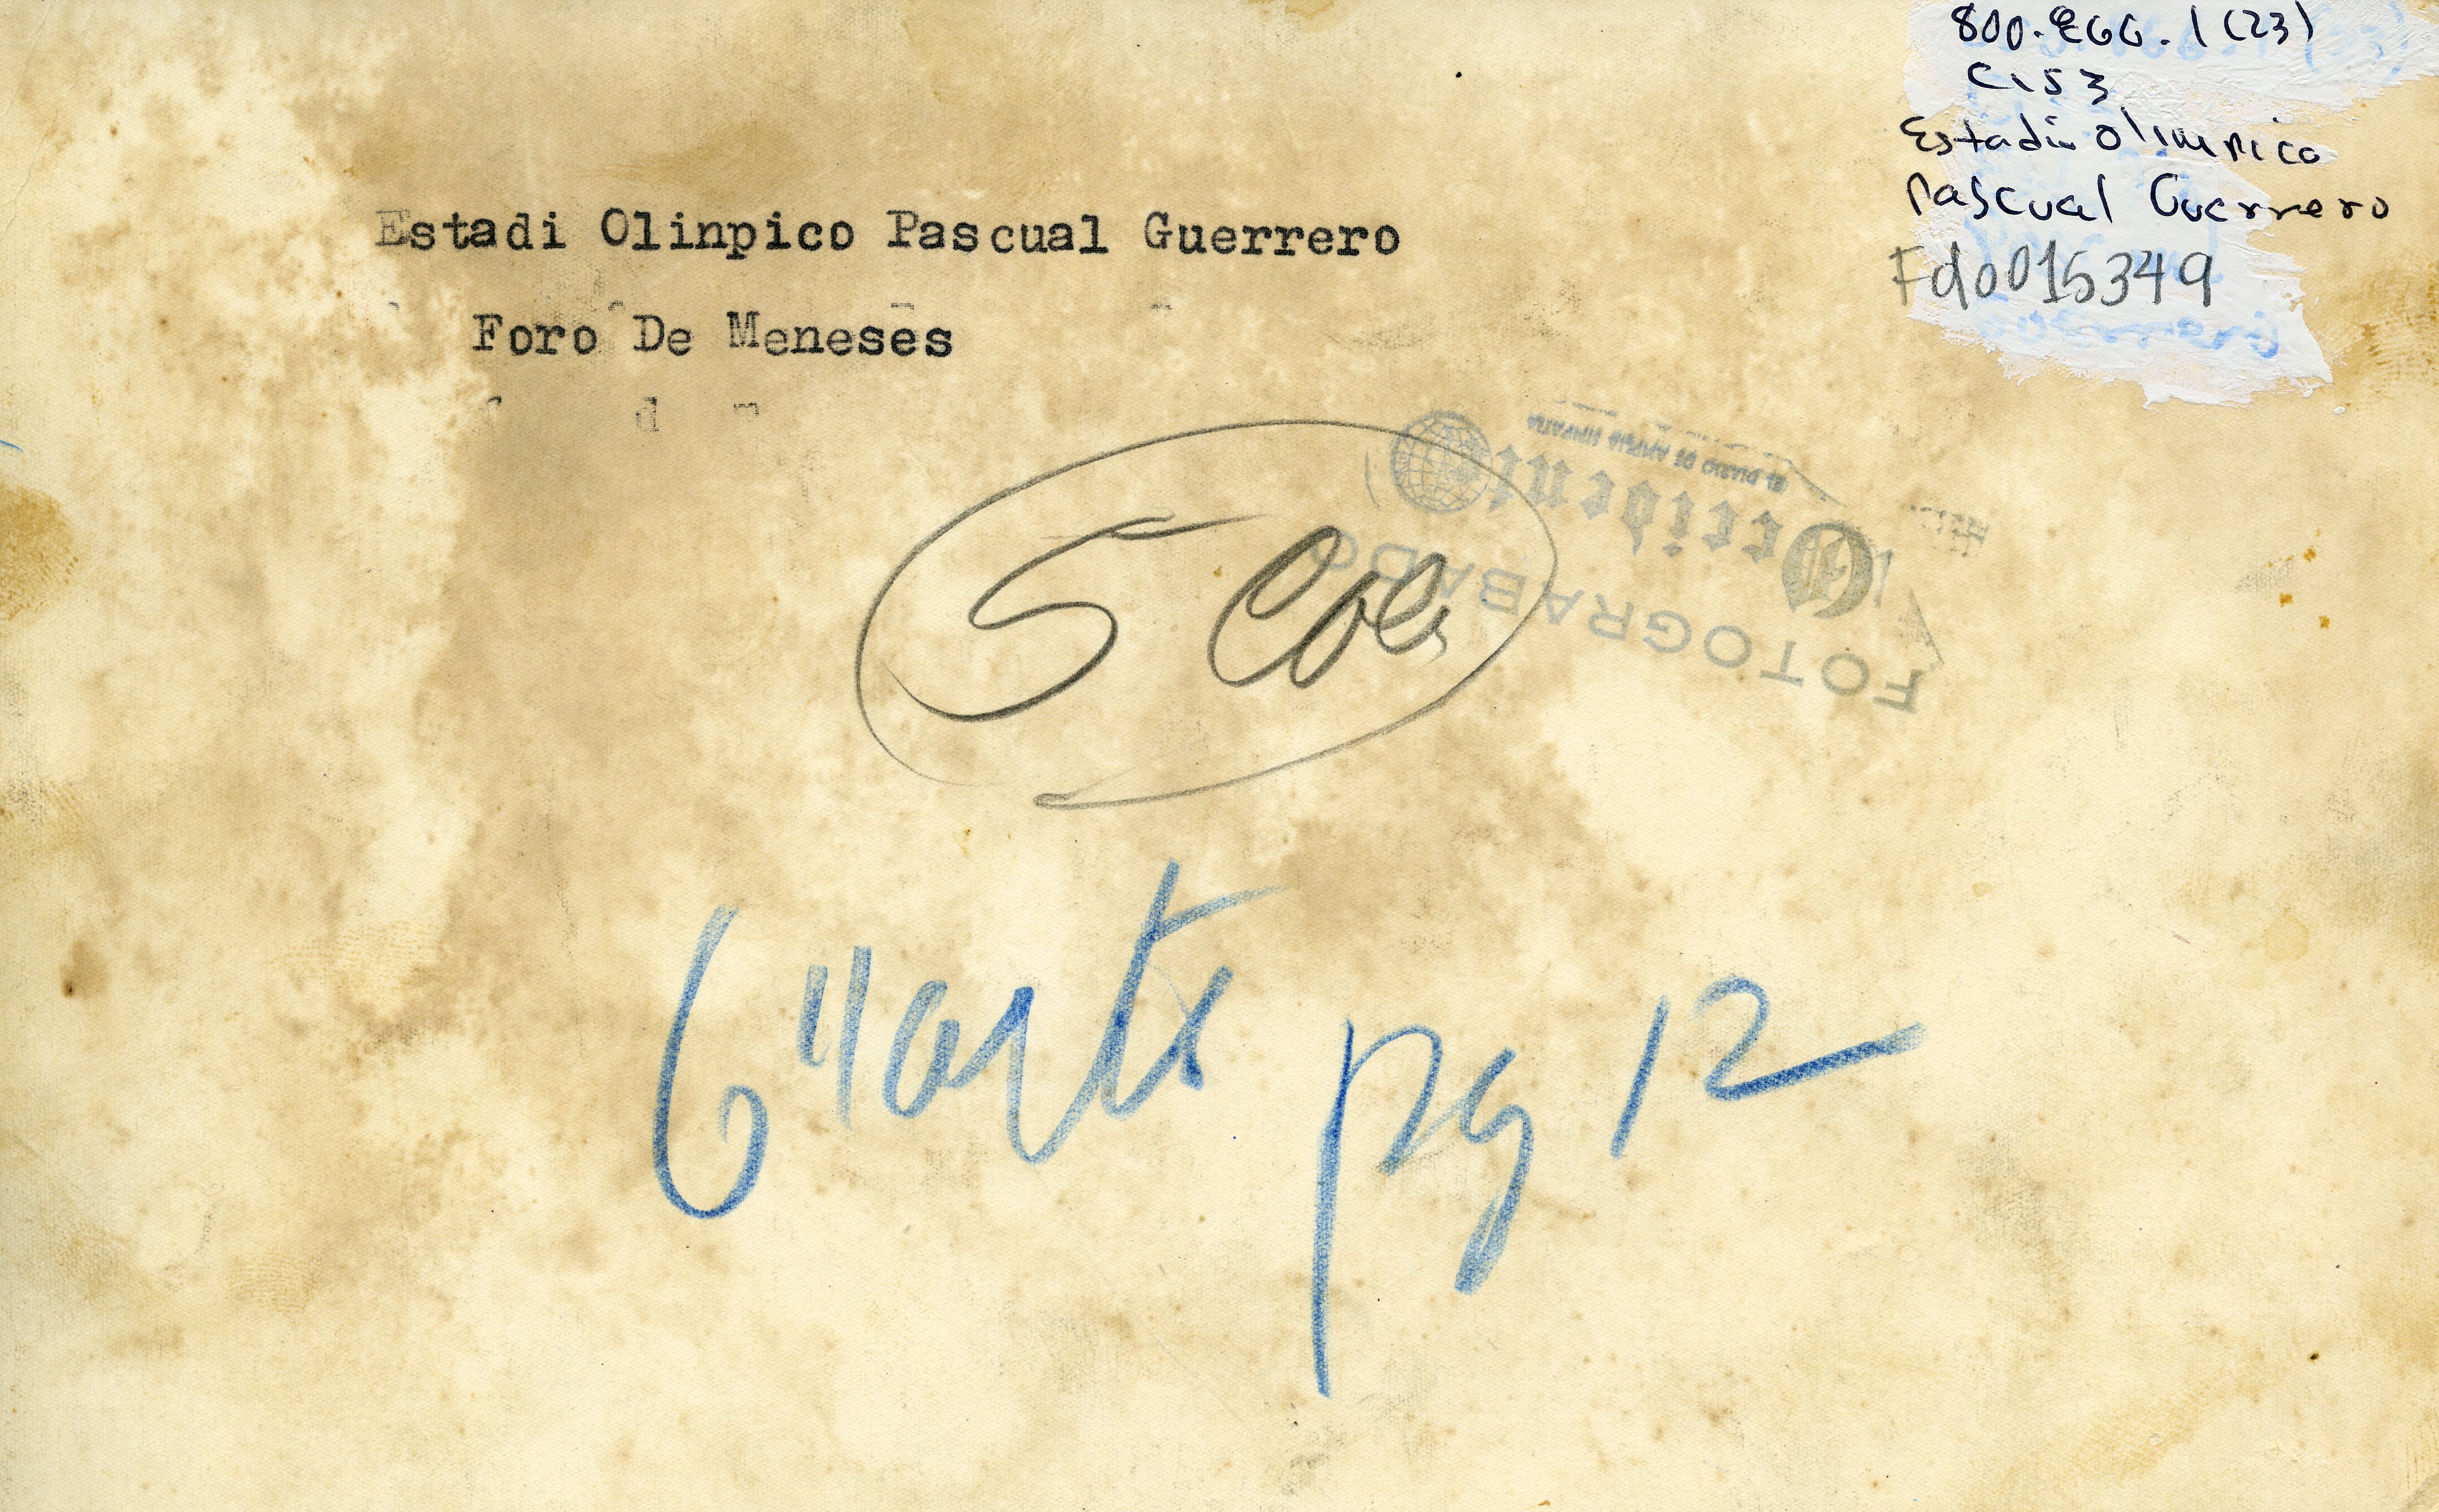 800.EGG.1(23)
C153
Estadio Olimpico
Pascual Guerrero
Fdo015349
Estadi Olinpico Pascual Guerrero
Foro De Meneses
EL DIARIO DE AMPLIA SIMPATIA
Occidente
FOTOGRABADO
5 Cols
pg 12